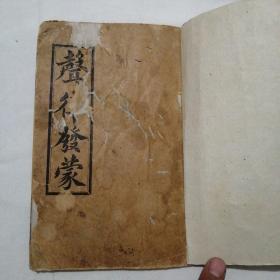 聲律發蒙